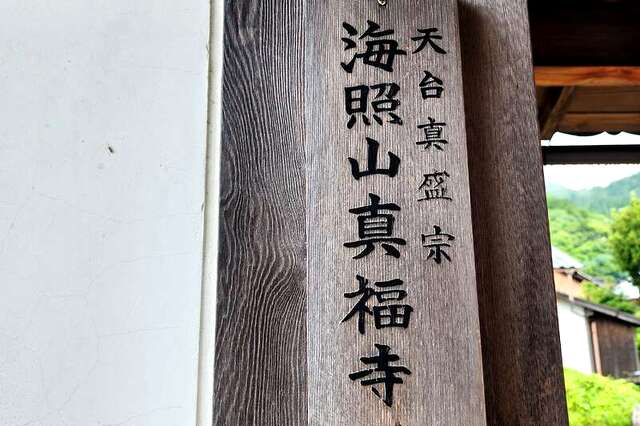 天台真盛宗
海照山真福寺